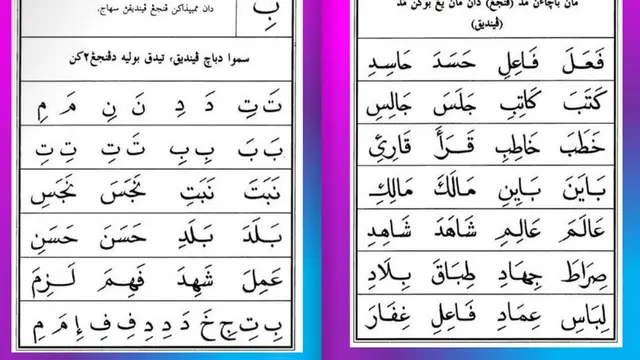 بِ
دان ممبيذاكن ڤنجڠ ڤينديقن سهاج.
سموا دباچ ڤينديق، تيدق بوليه دڤنجڠ٢كن
تَ تِ دَ دِ نَ نِ مَ مِ
بَ بَ بِ بِ تَ تَ تِ تِ
نَبَتَ نَبَتِ نَجَسَ نَجَسِ
بَلَدَ بَلَدِ حَسَنَ حَسَنِ
عَمِلَ شَهِدَ فَهِمَ لَزِمَ
بِ تِ جِ خَ دَ دِ دِ فِ فِ إِ مَ مِ
مان باچاءن مد (ڤنجڠ) دان مان يڠ بوكن مد
(ڤينديق)
فَعَلَ فَاعِلِ حَسَدَ حَاسِدِ
كَتَبَ كَاتِبِ جَلَسَ جَالِسِ
خَطَبَ خَاطِبِ قَرَأَ قَارِئِ
بَايَنَ بَايِنِ مَالَكَ مَالِكِ
عَالَمَ عَالِمِ شَاهَدَ شَاهِدِ
صِرَاطَ جِهَادِ طِبَاقَ بِلَادِ
لِبَاسِ عِمَادِ فَاعِلِ غِفَارَ